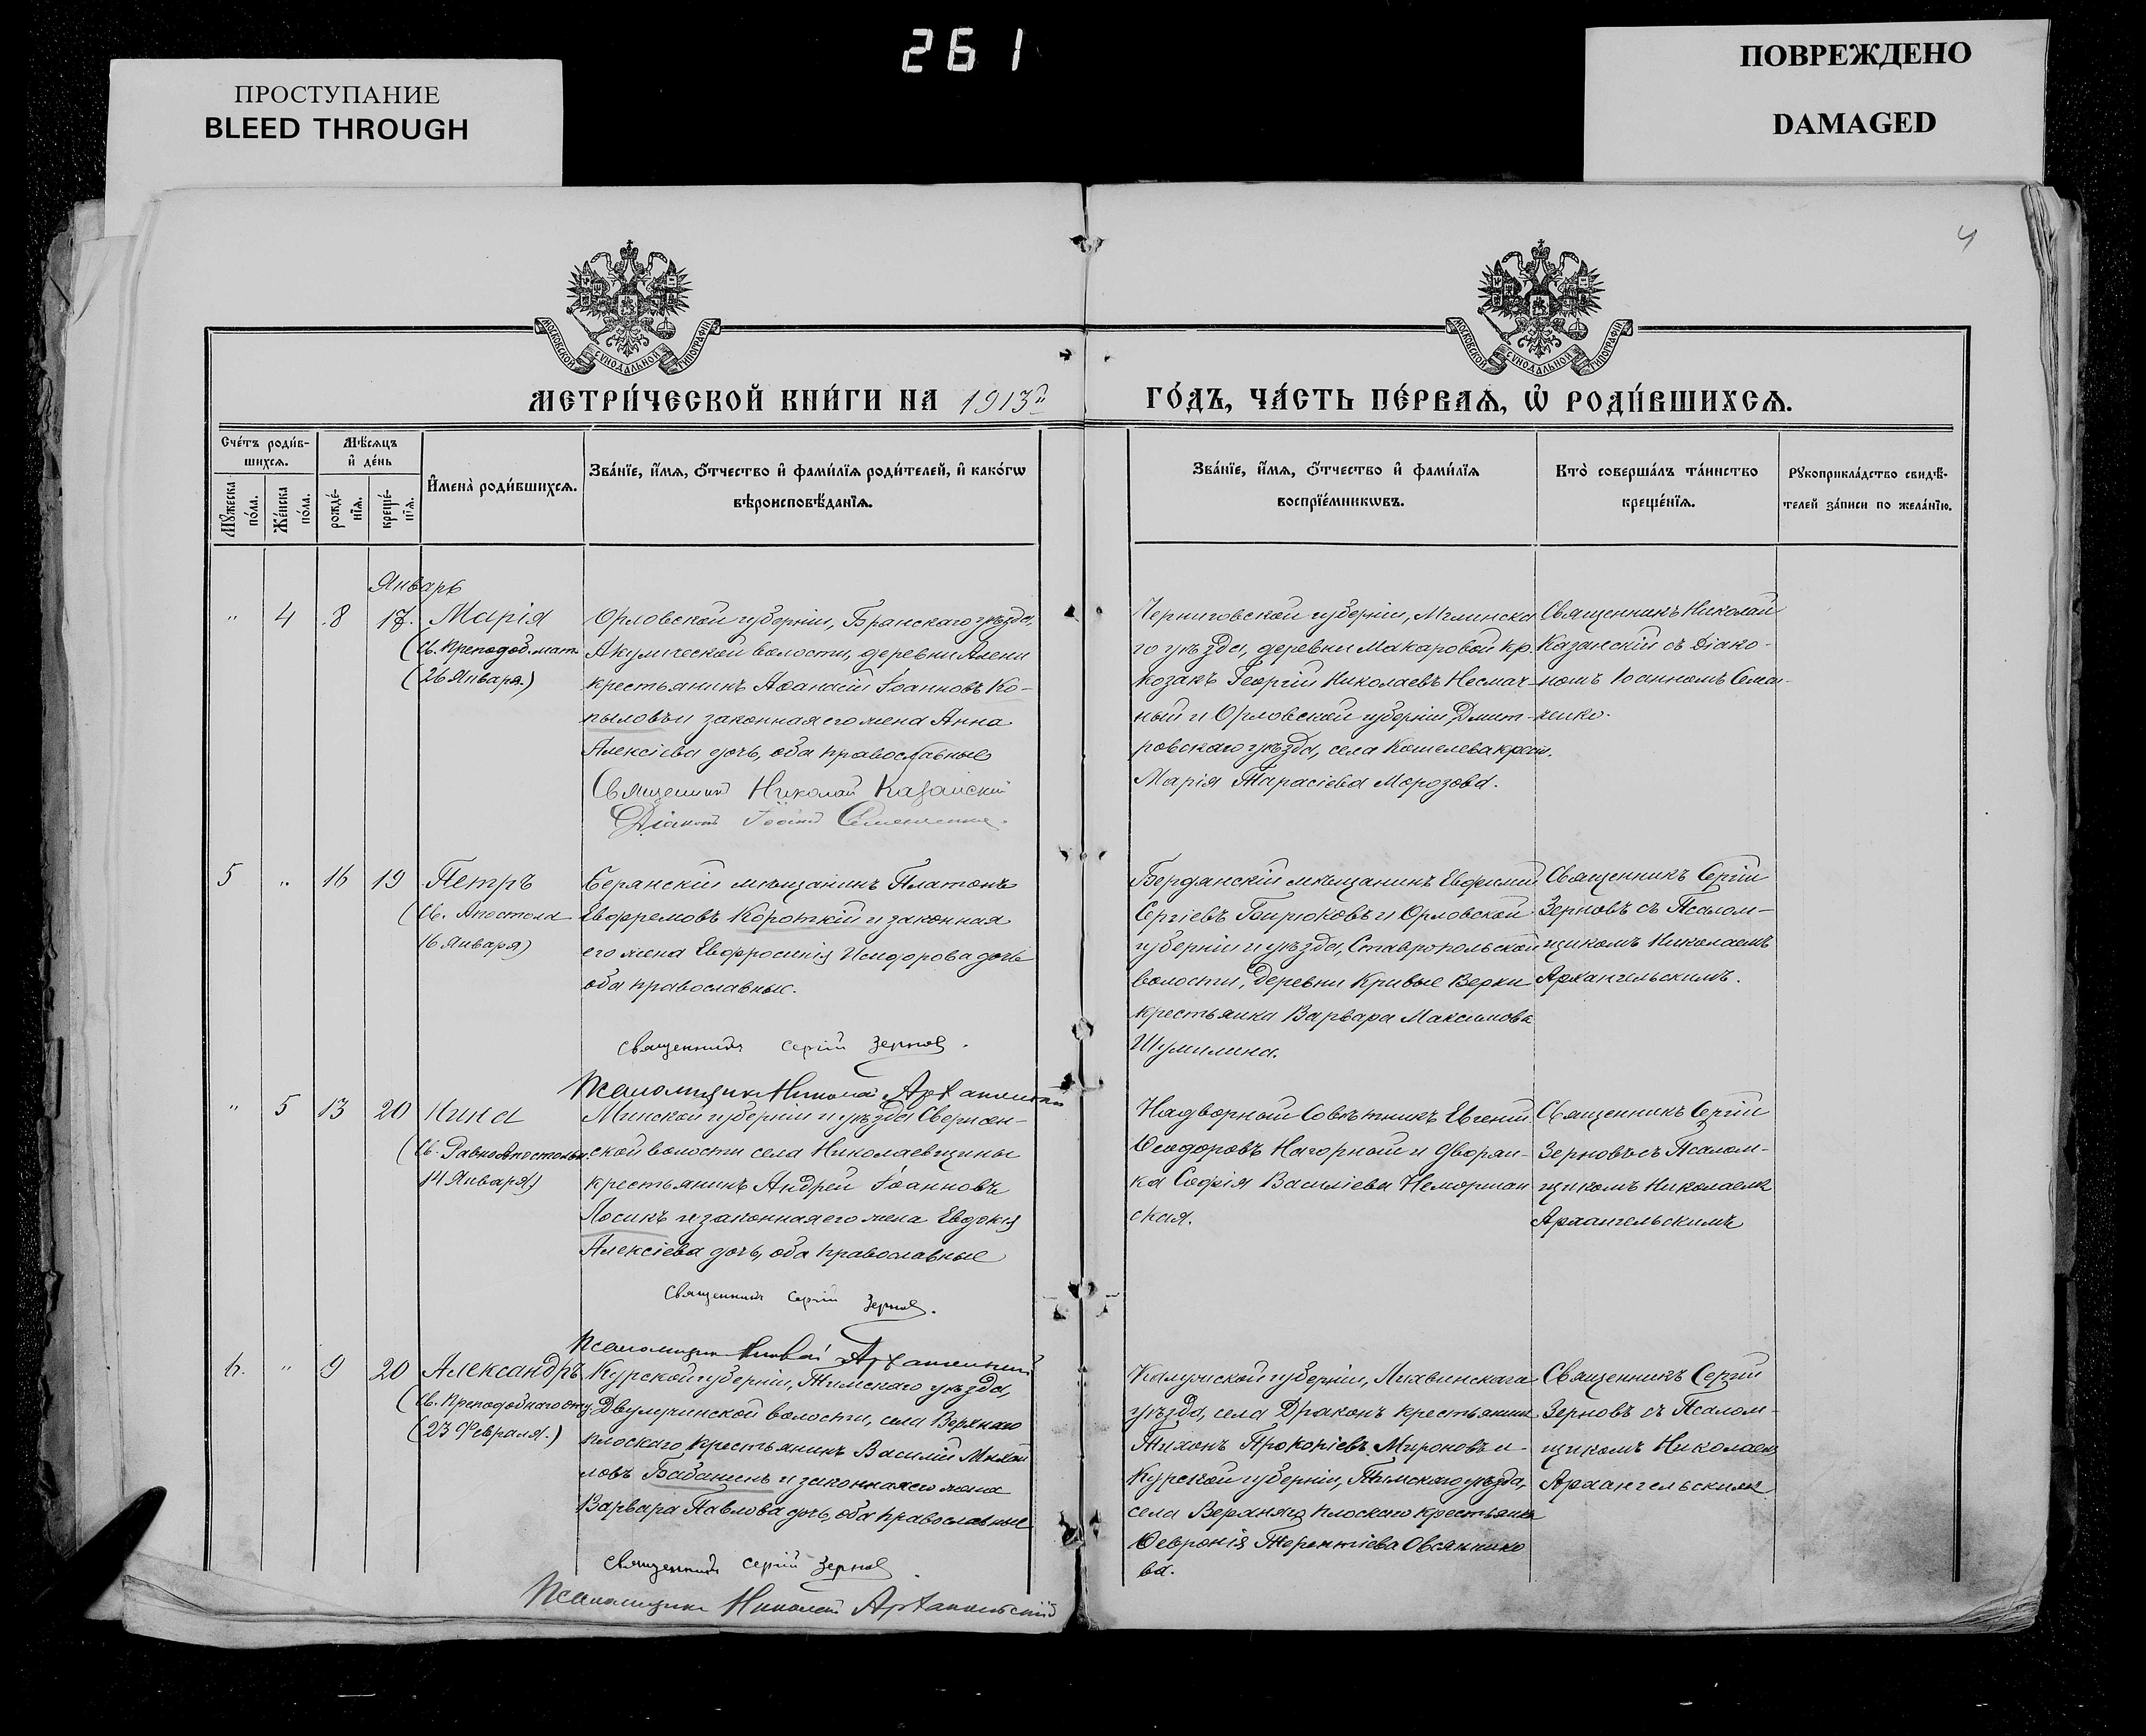 261
ПРОСТУПАНИЕ
BLEED THROUGH
ПОВРЕЖДЕНО
DAMAGED
4
МОСКОВСКОЙ СѴНОДАЛЬНОЙ ТИПОГРАФІИ
МОСКОВСКОЙ СѴНОДАЛЬНОЙ ТИПОГРАФІИ
МЕТРИ́ЧЕСКОЙ КНИ́ГИ НА 1913й
ГО́ДЪ, ЧА́СТЬ ПЕ́РВАѦ, Ѡ҆ РОДИ́ВШИХСѦ.
Сче́тъ роди́в-
шихсѧ.
Мѣ́сѧцъ
и҆ де́нь
Мꙋ́жеска по́ла.
Же́нска по́ла.
рожде́-
нїѧ.
креще́-
нїѧ.
И҆мена̀ роди́вшихсѧ.
Зва́нїе, и҆́мѧ, ѻ҆́тчество и҆ фами́лїѧ роди́телей, и҆ како́гѡ
вѣроисповѣ́данїѧ.
Зва́нїе, и҆́мѧ, ѻ҆́тчество и҆ фами́лїѧ
воспрїе́мникѡвъ.
Кто̀ соверша́лъ та́инство
креще́нїѧ.
Рꙋкоприкла́дство свидѣ́-
телей за́писи по жела́нїю.
Январь
" 4 8 17. Марія
(Св. Преподоб. мат.
(26 Января.)
Орловской губерніи, Брянскаго уѣзда,
Акулической волости, деревни Алени
крестьянинъ Аѳанасій Іоанновъ Ко-
пыловъ и законная его жена Анна
Алексіева дочь, оба православные
Священникъ Николай Казанскій
Діаконъ Іоаннъ Семенченко.
Черниговской губерніи, Мглинска
го уѣзда, деревни Макаровой Кр.
козакъ Георгій Николаевъ Несмач-
ный и Орловской губерніи, Дмит-
ровскаго уѣзда, села Кошелева крест.
Марія Тарасіева Морозова.
Священникъ Николай
Казанскій съ Діако-
номъ Іоанномъ Семен-
ченко.
5 " 16 19 Петръ
(Св. Апостола
16 Января)
Бердянскій мѣщанинъ Платонъ
Евфремовъ Короткій и законная
его жена Евфросинія Исидорова дочь
оба православные.
Священникъ Сергій Зерновъ.
Псаломщикъ Николай Архангельскій
Бердянскій мѣщанинъ Евфимій
Сергіевъ Бирюковъ и Орловской
губерніи и уѣзда, Ставропольской
волости, деревни Кривые Верхи
крестьянка Варвара Максимова
Шумилина.
Священникъ Сергій
Зерновъ съ Псалом-
щикомъ Николаемъ
Архангельскимъ.
" 5 13 20 Нина
(Св. РавноАпостольн.
14 Января)
Минской губерніи и уѣзда Свержен-
ской волости села Николаевщины
крестьянинъ Андрей Іоанновъ
Лосикъ и законная его жена Евдокія
Алексіева дочь, оба православные
Священникъ Сергій Зерновъ.
Псаломщикъ Николай Архангельскій
Надворный Совѣтникъ Евгеній
Ѳеодоровъ Нагорный и дворян-
ка Софія Василіева
ская.
Священникъ Сергій
Зерновъ съ Псалом-
щикомъ Николаемъ
Архангельскимъ
6. " 9 20 Александръ
(Св. Преподобнаго отц.
(23 Февраля.)
Курской губерніи, Тимскаго уѣзда,
Двулучинской волости, села Верхняго
Плоскаго, крестьянинъ Василій Михай
ловъ Бабанинъ и законная его жена
Варвара Павлова дочь, оба православные
Священникъ Сергій Зерновъ.
Псаломщикъ Николай Архангельскій
Калужской губерніи, Лихвинскаго
уѣзда, села Драконъ крестьянинъ
Тихонъ Прокопіевъ Мироновъ и
Курской губерніи, Тимскаго уѣзда,
села Верхняго Плоскаго крестьянка
Ѳевронія Терентіева Овсяннико
ва.
Священникъ Сергій
Зерновъ съ Псалом-
щикомъ Николаемъ
Архангельскимъ